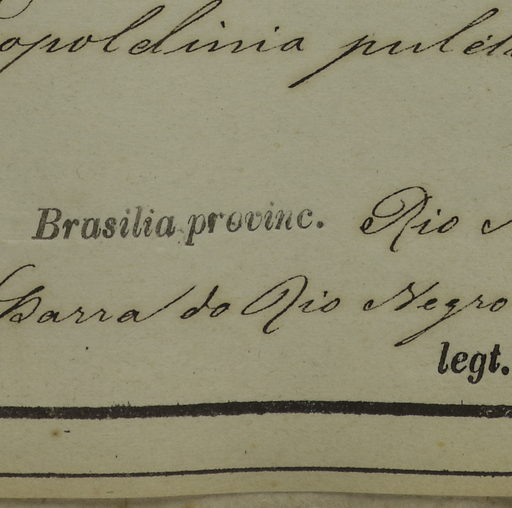 opoldinia pulch
Brasilia provinc. Rio N
Barra do Rio Negro
legt.